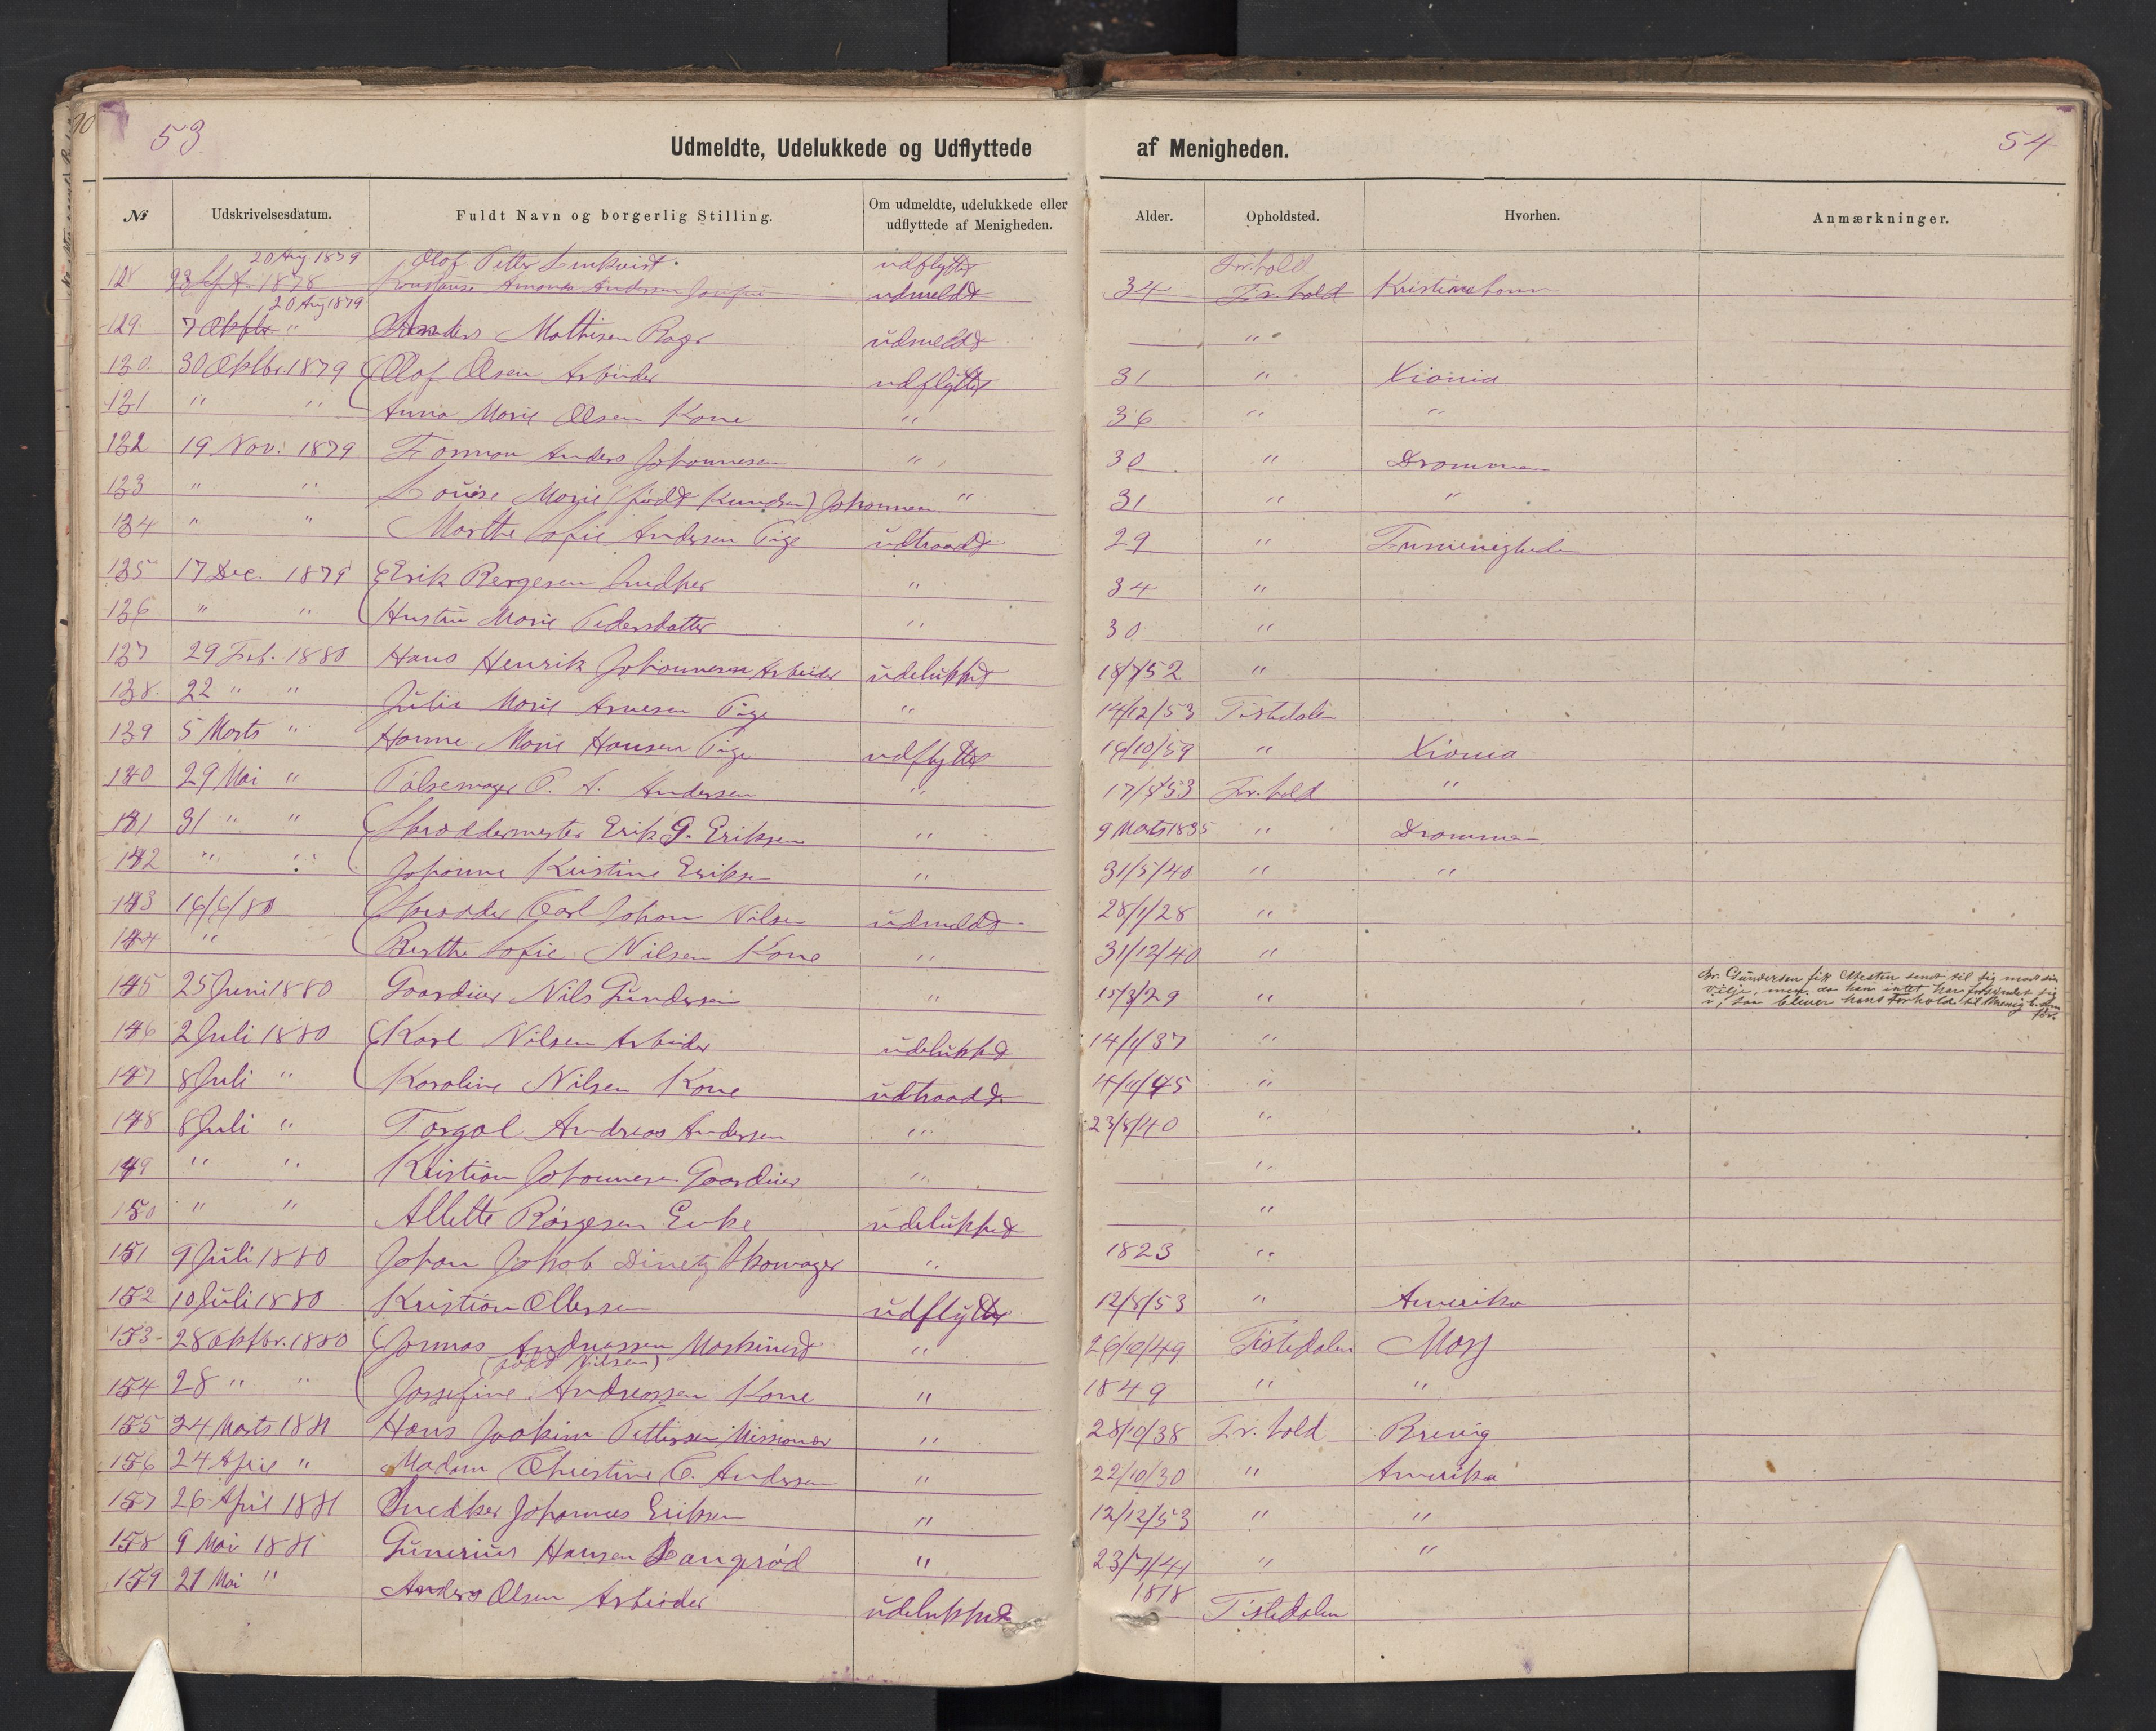 53
Udmeldte, Udelukkede og Udflyttede af Menigheden.
54
No Udskrivelsesdatum. Fuldt Navn og borgerlig Stilling. Om udmeldte, udelukkede eller udflyttede af Menigheden. Alder. Opholdsted. Hvorhen. Anmærkninger.
20 Aug 1879 Olof Petter udflyttet Fr.hald
128 Sept. 1878 Amanda Andersen Jomfru udmeldt 34 Fr. hald
20 Aug 1879
129. 7 Oktbr " Anders Mathisen udmeldt — "
130. 30 Oktbr. 1879 Olof Olsen Arbeider udflyttet 31 " Xiania
131 " " Anna Marie Olsen Kone " 36 " "
132 19 Nov. 1879 Formon Anders Johannesen " 30 " Drammen
133 " " Louise Marie (født Knudsen) Johannesen " 31 " "
134 " " Marthe Sofie Andersen Pige udtraadt 29 " Frimenigheden
135 17 Dec. 1879 Erik Børgesen Snedker " 34 "
136 " " Hustru Marie Pedersdatter " 30 "
137 29 Feb. 1880 Hans Henrik Johannesen Arbeider udelukket 18/7/52 "
138. 22 " " Julie Marie Arnesen Pige " 14/12/53 Tistedalen
139 5 Marts " Hanne Marie Hansen Pige udflyttet 14/10/59 " Xiania
140 29 Mai " Pølsemager P. A. Andersen " 17/5/53 Fr. hald "
141 31 " " Skræddermester Erik G. Eriksen " 9 Marts 1835 " Drammen
142 " " Johanne Kristine Eriksen " 31/5/40 " "
143 16/6/80 Skrædder Carl Johan Nilsen udmeldt 28/1/28 "
144 " Berthe Sofie Nilsen Kone " 31/12/40 "
145 25 Juni 1880 Gaardeier Nils Gundersen " 15/3/29 " Br. Gundersen fik Attesten sendt til sig mod sin
Vilje, men da han intet har forsyndet sig
i, saa bliver hans Forhold til Menig. som
før.
146 2 Juli 1880 Karl Nilsen Arbeider udelukket 14/1/37 "
147 8 Juli " Karoline Nilsen Kone udtraadt 4/11/45 "
148 8 Juli " Torgal Andreas Andersen " 23/8/40 "
149 " " Kristian Johannesen Gaardeier " — "
150 " " Allette Børgesen Enke udelukket — "
151 9 Juli 1880 Johan Jakob Dinetz Skomager " 1823 "
152 10 Juli 1880 Kristian Ollersen udflyttet 12/8/53 " Amerika
153 28 Oktbr. 1880 Jonnas Andreassen Maskinist " 26/6/49 Tistedalen Moss
(født Nilsen)
154 28 " " Jossefine Andreassen Kone " 1849 " "
155 24 Marts 1881 Hans Joakim Pettersen Missionær " 28/10/38 Fr. hald Brevig
156 24 April " Madam Christine C. Andersen " 22/10/30 " Amerika
157 26 April 1881 Snedker Johannes Eriksen " 12/12/53 " "
158 9 Mai 1881 Gunerius Hansen Langerød " 23/7/41 " "
159 21 Mai " Anders Olsen Arbeider udelukket 1818 Tistedalen